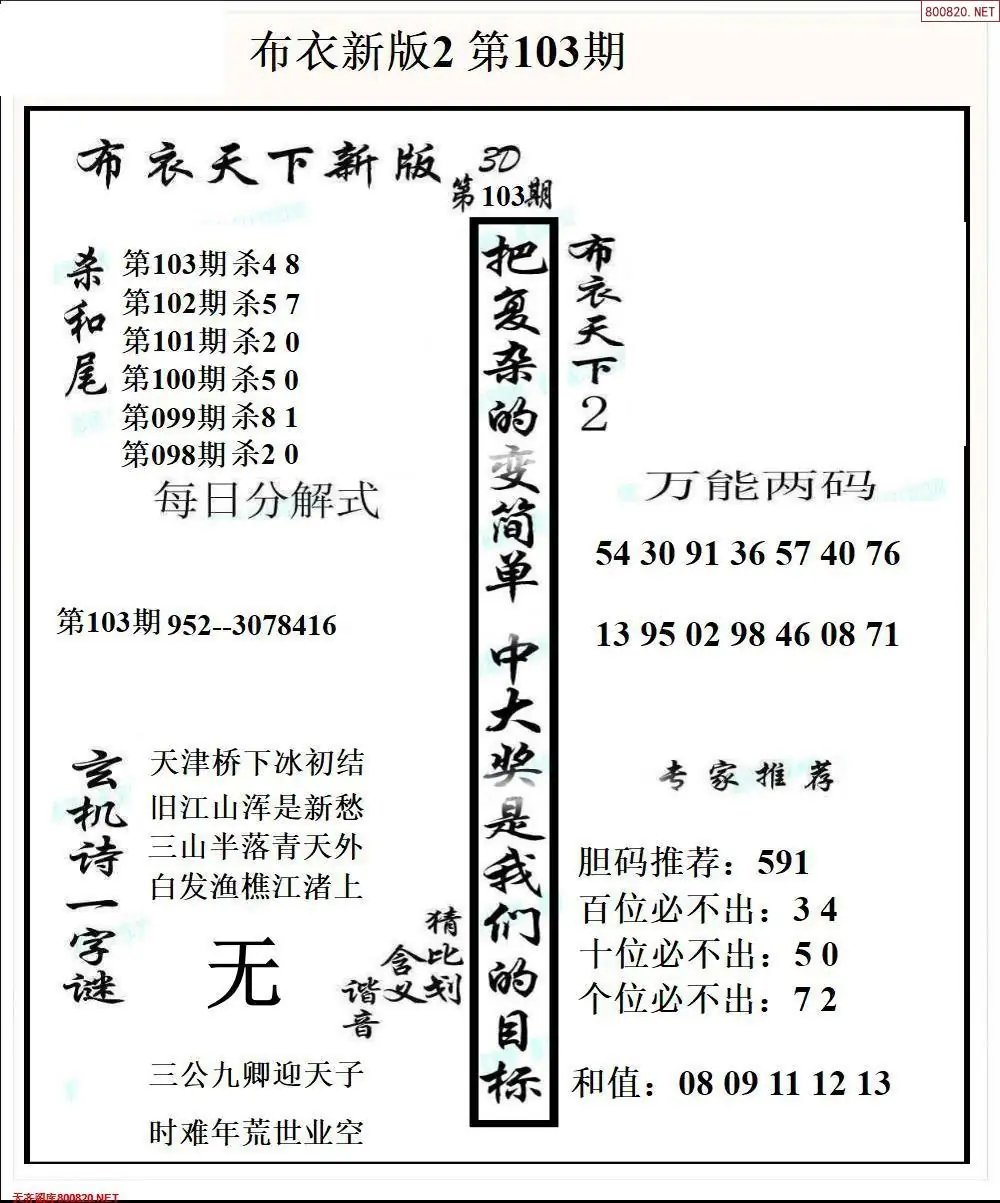 800820.NET
布衣新版2 第103期
布衣天下新版 3D
第103期
杀和尾
第103期 杀4 8
第102期 杀5 7
第101期 杀2 0
第100期 杀5 0
第099期 杀8 1
第098期 杀2 0
每日分解式
第103期 952--3078416
玄机诗一字谜
天津桥下冰初结
旧江山浑是新愁
三山半落青天外
白发渔樵江渚上
无
猜比划
含义
谐音
三公九卿迎天子
时难年荒世业空
把复杂的变简单 中大奖是我们的目标
布衣天下2
万能两码
54 30 91 36 57 40 76
13 95 02 98 46 08 71
专家推荐
胆码推荐：591
百位必不出：3 4
十位必不出：5 0
个位必不出：7 2
和值：08 09 11 12 13
天齐图库800820.NET